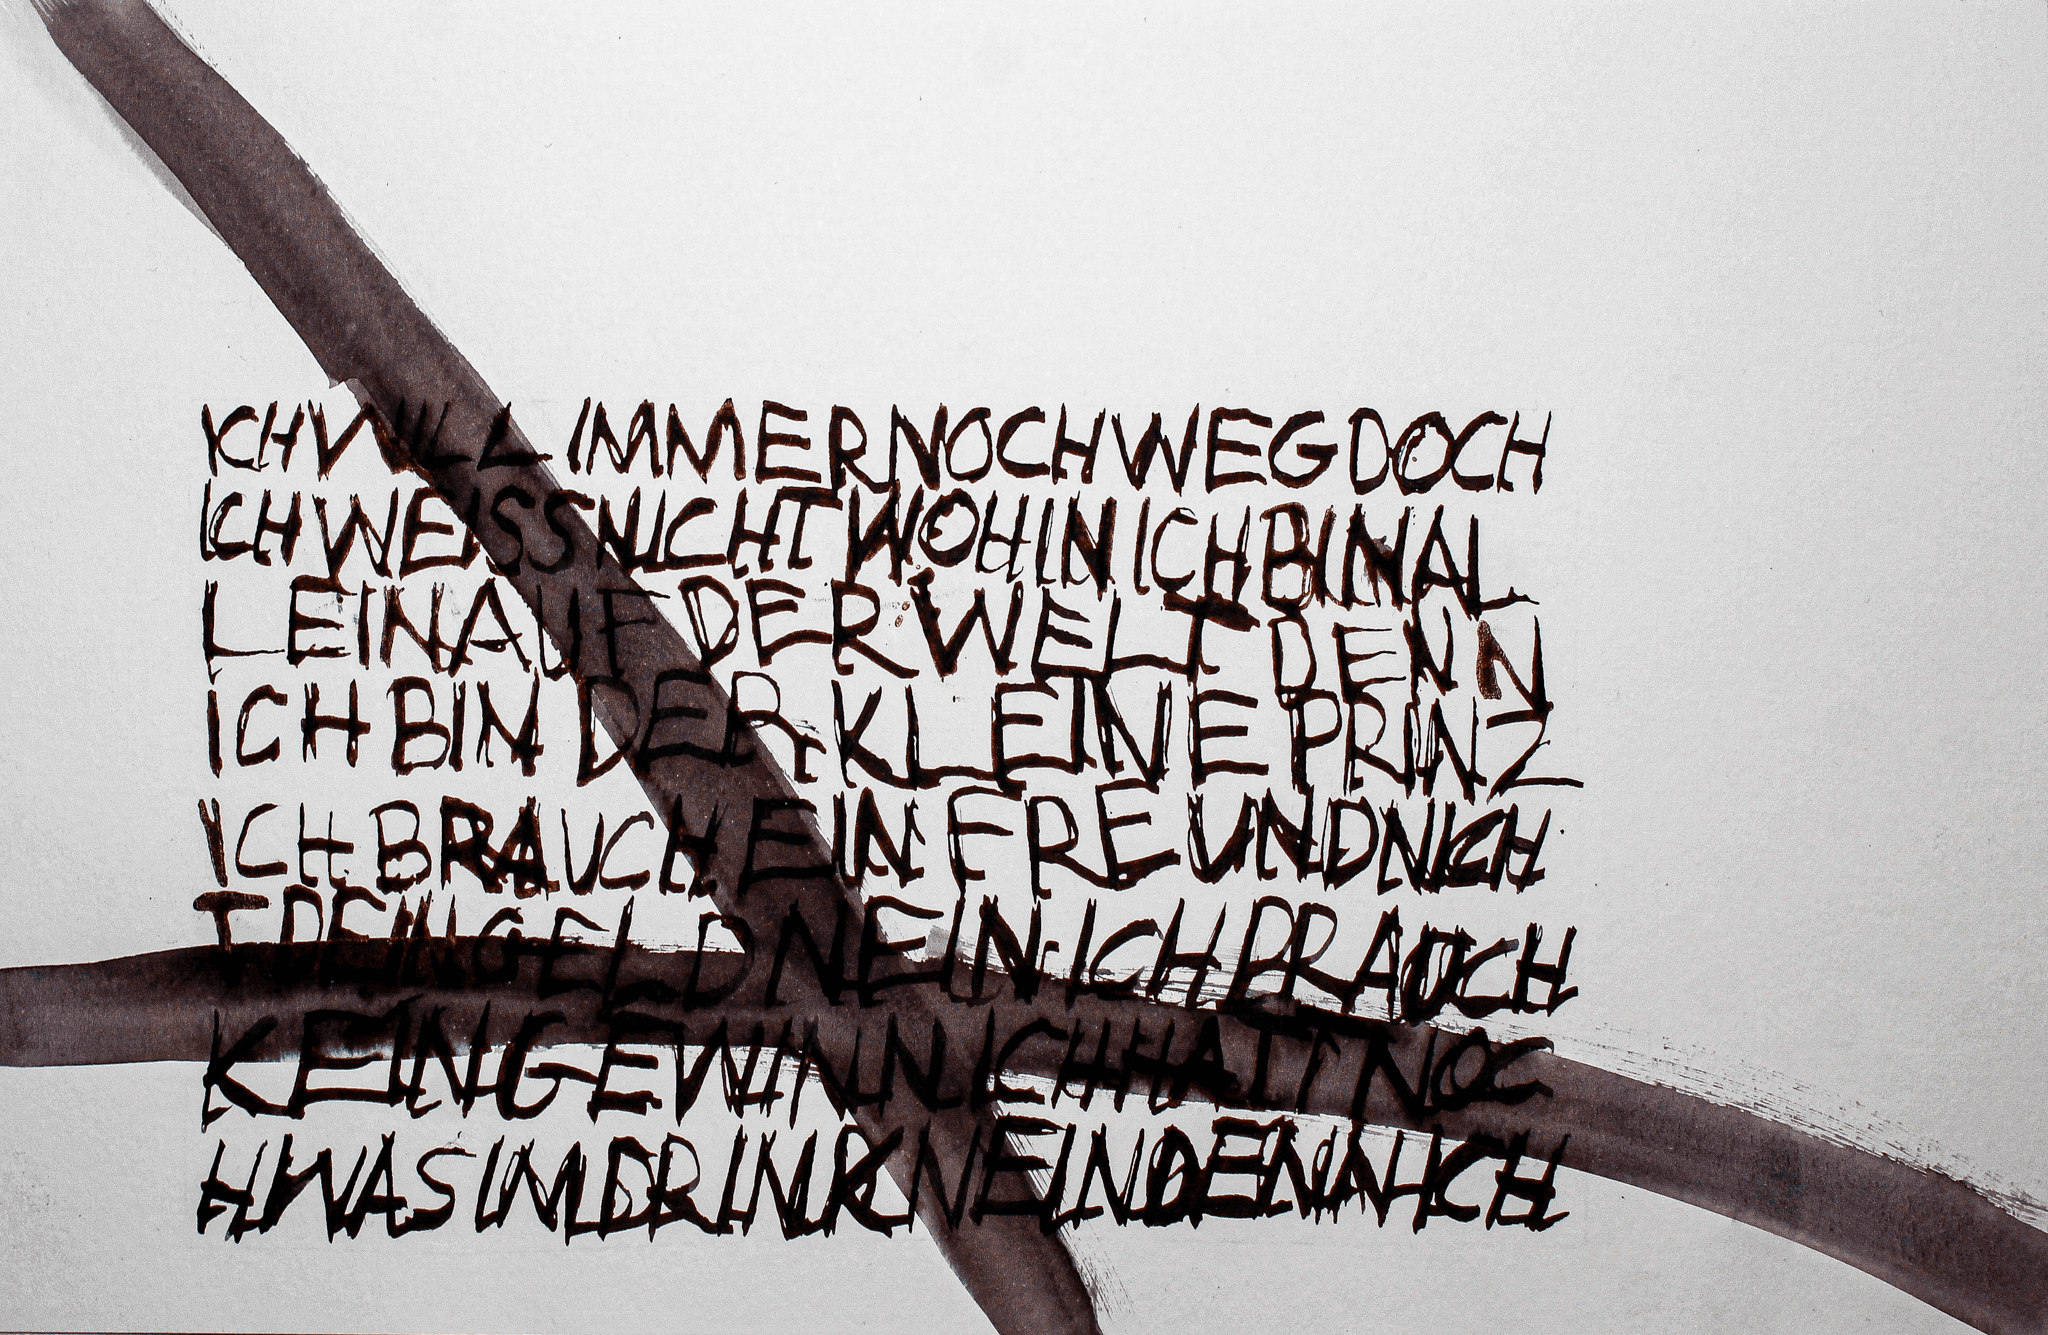 ICH WILL IMMER NOCH WEG DOCH
ICH WEISS NICHT WOHIN ICH BIN AL
LEIN AUF DER WELT DENN
ICH BIN DER KLEINE PRINZ
ICH BRAUCH EIN FREUND NICH
T DEIN GELD NEIN ICH BRAUCH
KEIN GEWINN ICH HATT NOC
H WAS IM DRINK NEIN DENN ICH